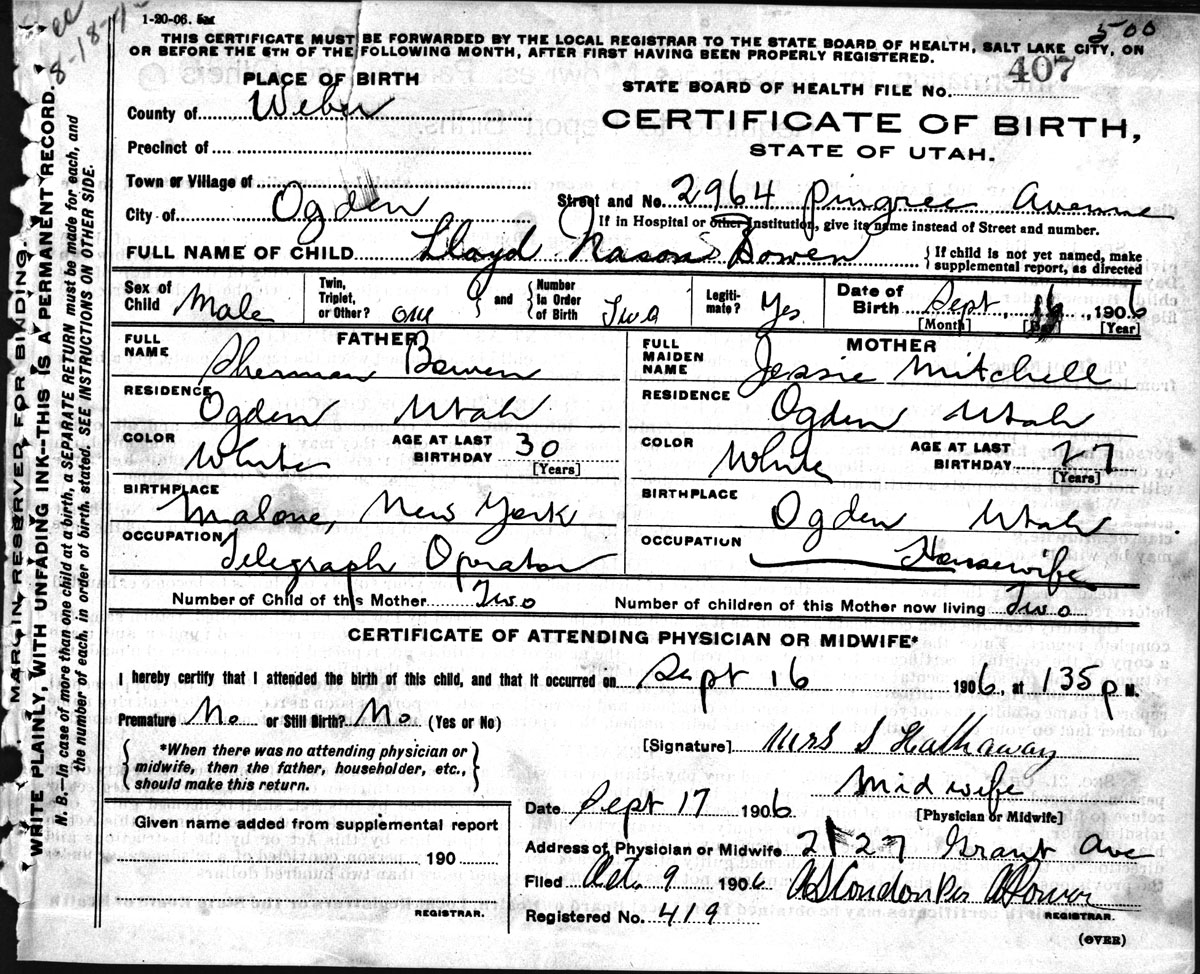 1-20-06.
500
THIS CERTIFICATE MUST BE FORWARDED BY THE LOCAL REGISTRAR TO THE STATE BOARD OF HEALTH, SALT LAKE CITY, ON
OR BEFORE THE 5TH OF THE FOLLOWING MONTH, AFTER FIRST HAVING BEEN PROPERLY REGISTERED.
PLACE OF BIRTH
STATE BOARD OF HEALTH FILE No. 407
County of Weber
CERTIFICATE OF BIRTH,
STATE OF UTAH.
Precinct of
Town or Village of
Street and No. 2964 Pingree Avenue
City of Ogden
If in Hospital or other Institution, give its name instead of Street and number.
FULL NAME OF CHILD Lloyd Nason Bowen
{If child is not yet named, make supplemental report, as directed
Sex of Child Male
Twin, Triplet, or Other? one and {Number in Order of Birth Two
Legitimate? Yes
Date of Birth Sept 16, 1906
[Month] [Day] [Year]
FATHER
FULL NAME Sherman Bowen
RESIDENCE Ogden Utah
COLOR White AGE AT LAST BIRTHDAY 30 [Years]
BIRTHPLACE Malone, New York
OCCUPATION Telegraph Operator
MOTHER
FULL MAIDEN NAME Jessie Mitchell
RESIDENCE Ogden Utah
COLOR White AGE AT LAST BIRTHDAY 27 [Years]
BIRTHPLACE Ogden Utah
OCCUPATION Housewife
Number of Child of this Mother Two
Number of children of this Mother now living Two
CERTIFICATE OF ATTENDING PHYSICIAN OR MIDWIFE*
I hereby certify that I attended the birth of this child, and that it occurred on Sept 16 1906, at 135 P M.
Premature No or Still Birth? No (Yes or No)
{*When there was no attending physician or midwife, then the father, householder, etc., should make this return.}
[Signature] Mrs S Hathaway
Midwife
[Physician or Midwife]
Date Sept 17 1906
Address of Physician or Midwife 2127 Grant Ave
Filed Oct. 9 1906 A S Condon Per
REGISTRAR.
Registered No. 419
(OVER)
Given name added from supplemental report
190
REGISTRAR.
MARGIN RESERVED FOR BINDING.
WRITE PLAINLY, WITH UNFADING INK--THIS IS A PERMANENT RECORD.
N. B.--In case of more than one child at a birth, a SEPARATE RETURN must be made for each, and
the number of each, in order of birth, stated. SEE INSTRUCTIONS ON OTHER SIDE.